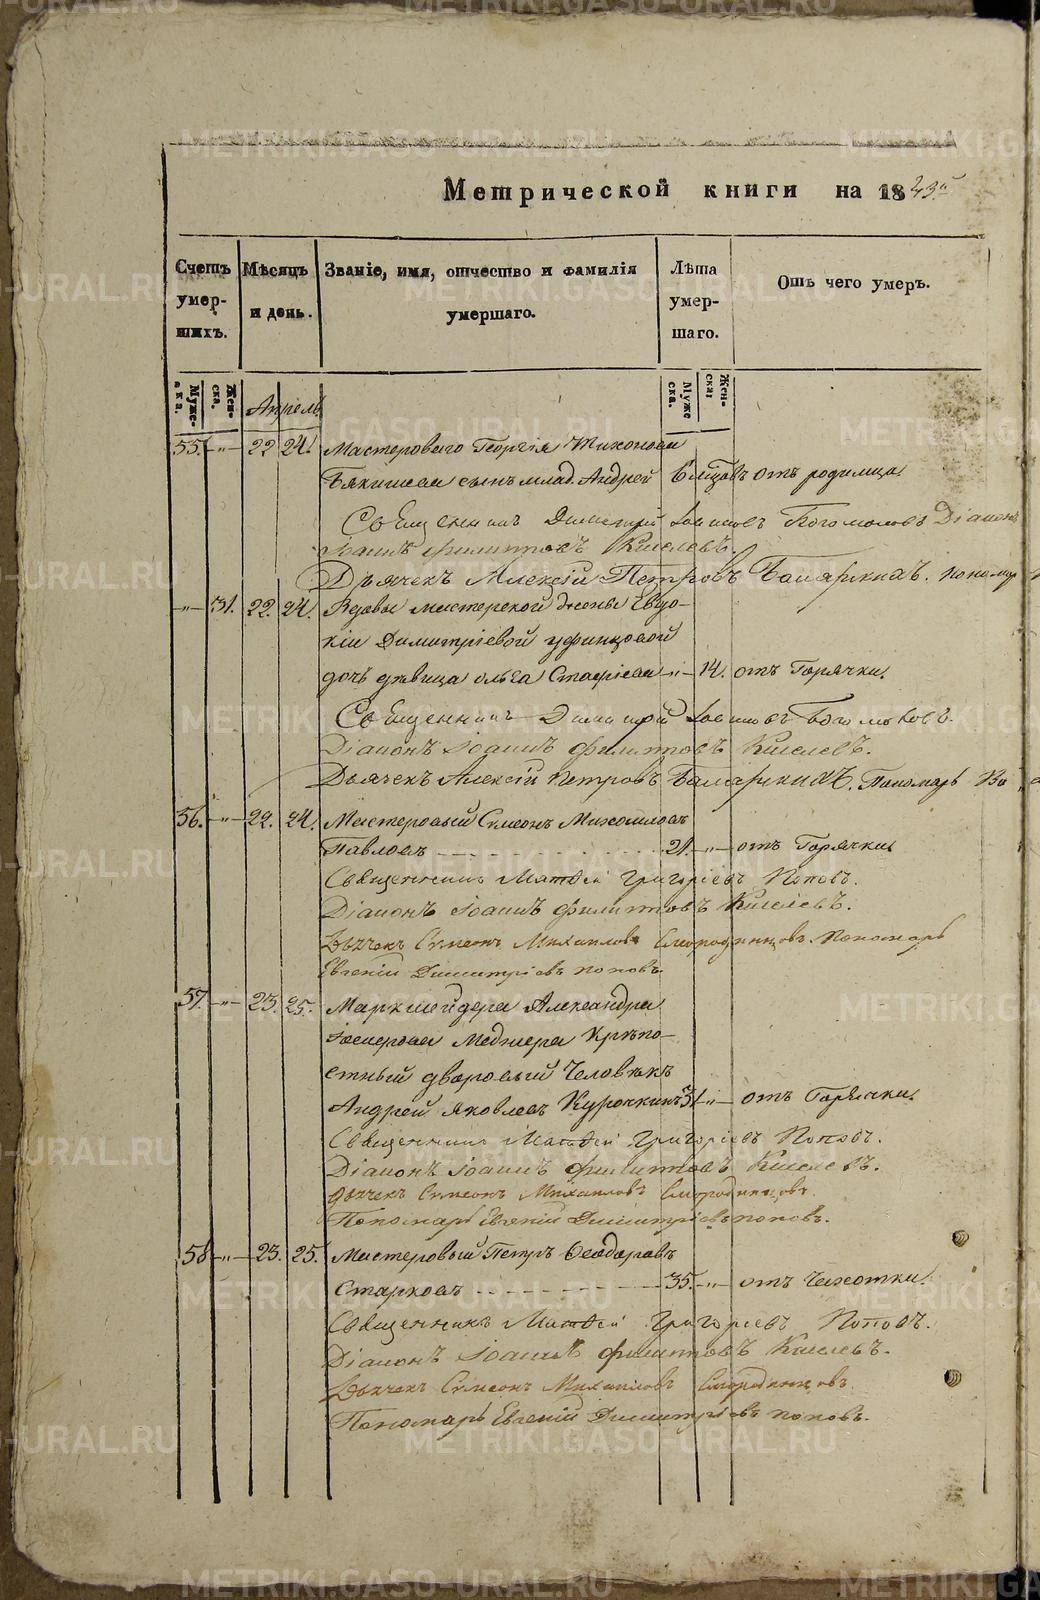 Метрической книги на 1843 й
Счетъ умер- шихъ.
Мѣсяцъ и день.
Званіе, имя, отчество и фамилія умершаго.
Лѣта умер- шаго.
Отъ чего умеръ.
Муже- ска.
Жен- ска.
Апрель
Муже ска.
Жен- ска:
55. —„— 22 24. Мастероваго Георгія Тихонова
сынъ млад. Андрей отъ родимца.
Священникъ Димитрій Богомоловъ Діаконъ
Іоаннъ Филипповъ Киселевъ.
Дьячекъ Алексій Петровъ Пономарь
—„— 31. 22. 24. Вдовы мастерской жены Евдо-
кіи Димитріевой Уфинцовой
дочь дѣвица Ольга —„— 14. отъ Горячки.
Священникъ Димитрій Богомоловъ.
Діаконъ Іоаннъ Филипповъ Киселевъ.
Дьячекъ Алексій Петровъ Пономарь
56. —„— 22. 24. Мастеровый Симеонъ Михайловъ
Павловъ 21. —„— отъ Горячки.
Священникъ Матѳей Григоріевъ Поповъ.
Діаконъ Іоаннъ Филипповъ Киселевъ.
Дьячекъ Симеонъ Михаиловъ Смородинцовъ. Пономарь
Евгеній Димитріевъ Поповъ
57. —„— 23. 25. Маркшейдера Александра
Меджера Крѣпо-
стный дворовый Человѣкъ
Андрей Яковлевъ Курочкинъ 31 —„— отъ Горячки.
Священникъ Матѳей Григоріевъ Поповъ.
Діаконъ Іоаннъ Филипповъ Киселевъ.
Дьячекъ Симеонъ Михаиловъ Смородинцовъ.
Пономарь Евгеній Димитріевъ Поповъ.
58 —„— 23. 25. Мастеровый Петръ Ѳеодоровъ
Старковъ 35. —„— отъ Чахотки.
Священникъ Матѳей Григоріевъ Поповъ.
Діаконъ Іоаннъ Филипповъ Киселевъ.
Дьячекъ Симеонъ Михаиловъ Смородинцовъ
Пономарь Евгеній Димитріевъ Поповъ.
METRIKI.GASO-URAL.RU